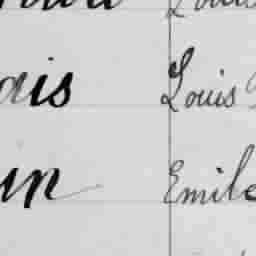 ais Louis
un Emile